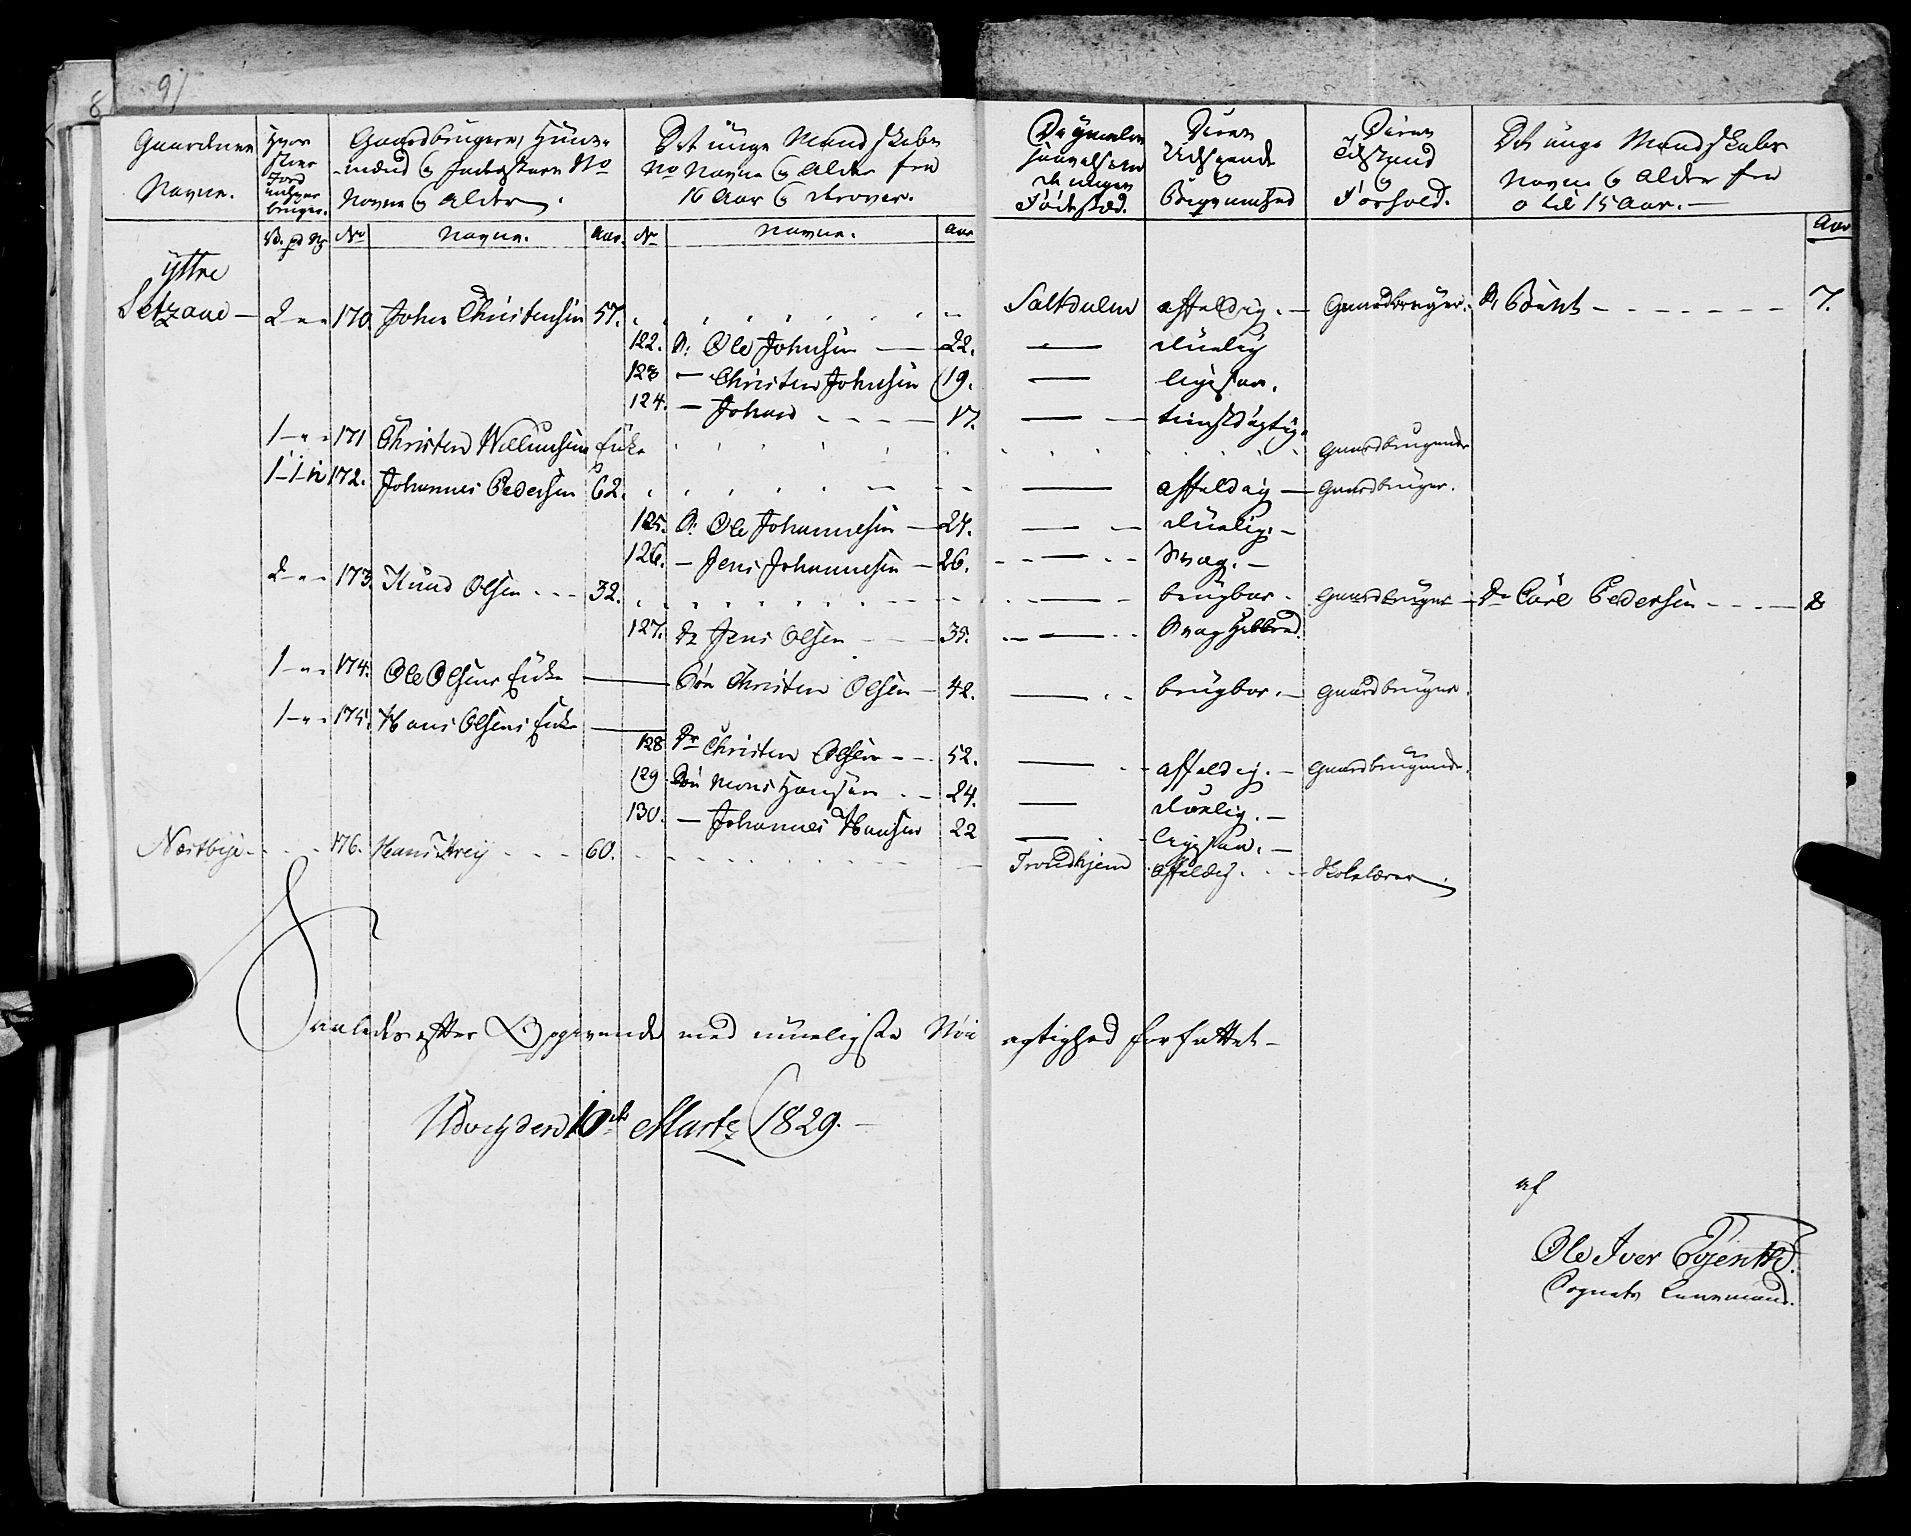 91
8
Gaardenes Navne.
Hvor stor Jord enhver bruger.
Gaardbrugere, Huus-
-mænd & Inderstern No
Navne & Alder.
Det unge Mandskabs
No Navne & Alder fra
16 Aar & derover.
De Gamles
saavelsom
de unges
Fødested.
Deres
Udseende
&
Beqvemhed
Deres
Tilstand
&
Forhold.
Det unge Mandskabs
Navne & Alder fra
0 til 15 Aar. —
No Navne. Aar. No Navne. Aar Aar
Yttre
Setzaae — 2 - - 170 John Christensen 57. Saltdalen affældig. — Gaardbruger. 7.
122. S: Ole Johnsen — 22. — duelig
123 — Christen Johnsen 19. — ligesaa.
124. — Johan - - - - 17. —
1 - - 171 Christen Willumsens Enke Gaardbrugende
1-1-12 172. Johannes Pedersen 62. — affældig — Gaardbruger.
125. S: Ole Johannesen — 27. — duelig. —
126. — Jens Johannesen — 26. — Svag. —
2 - - 173. Knud Olsen - - - 32. — brugbar. Gaardbruger — Carl Pedersen - - - — 8
127. Jens Olsen — 35. — Svag
1 - - 174. Ole Olsens Enke — Søn Christen Olsen — 42. — brugbar. — Gaardbruger.
1 - - 175. Hans Olsens Enke —
128 Dr Christen Olsen - - 52. — affældig. — Gaardbrugende.
129 Søn Mons Hansen . — 24. — duelig. —
130. — Johannes Hansen 22 — ligesaa. —
Næstbye - - - - 176. Hans Krey - - - 60. Trondhjem affældig. - - Skolelærer.
Saaledes efter Opgivende med mueligste Nøiagtighed forfattet —
Udvig den 10de Marts 1829. —
af
Ole Iver Evjenth.
Sognets Lensmand.